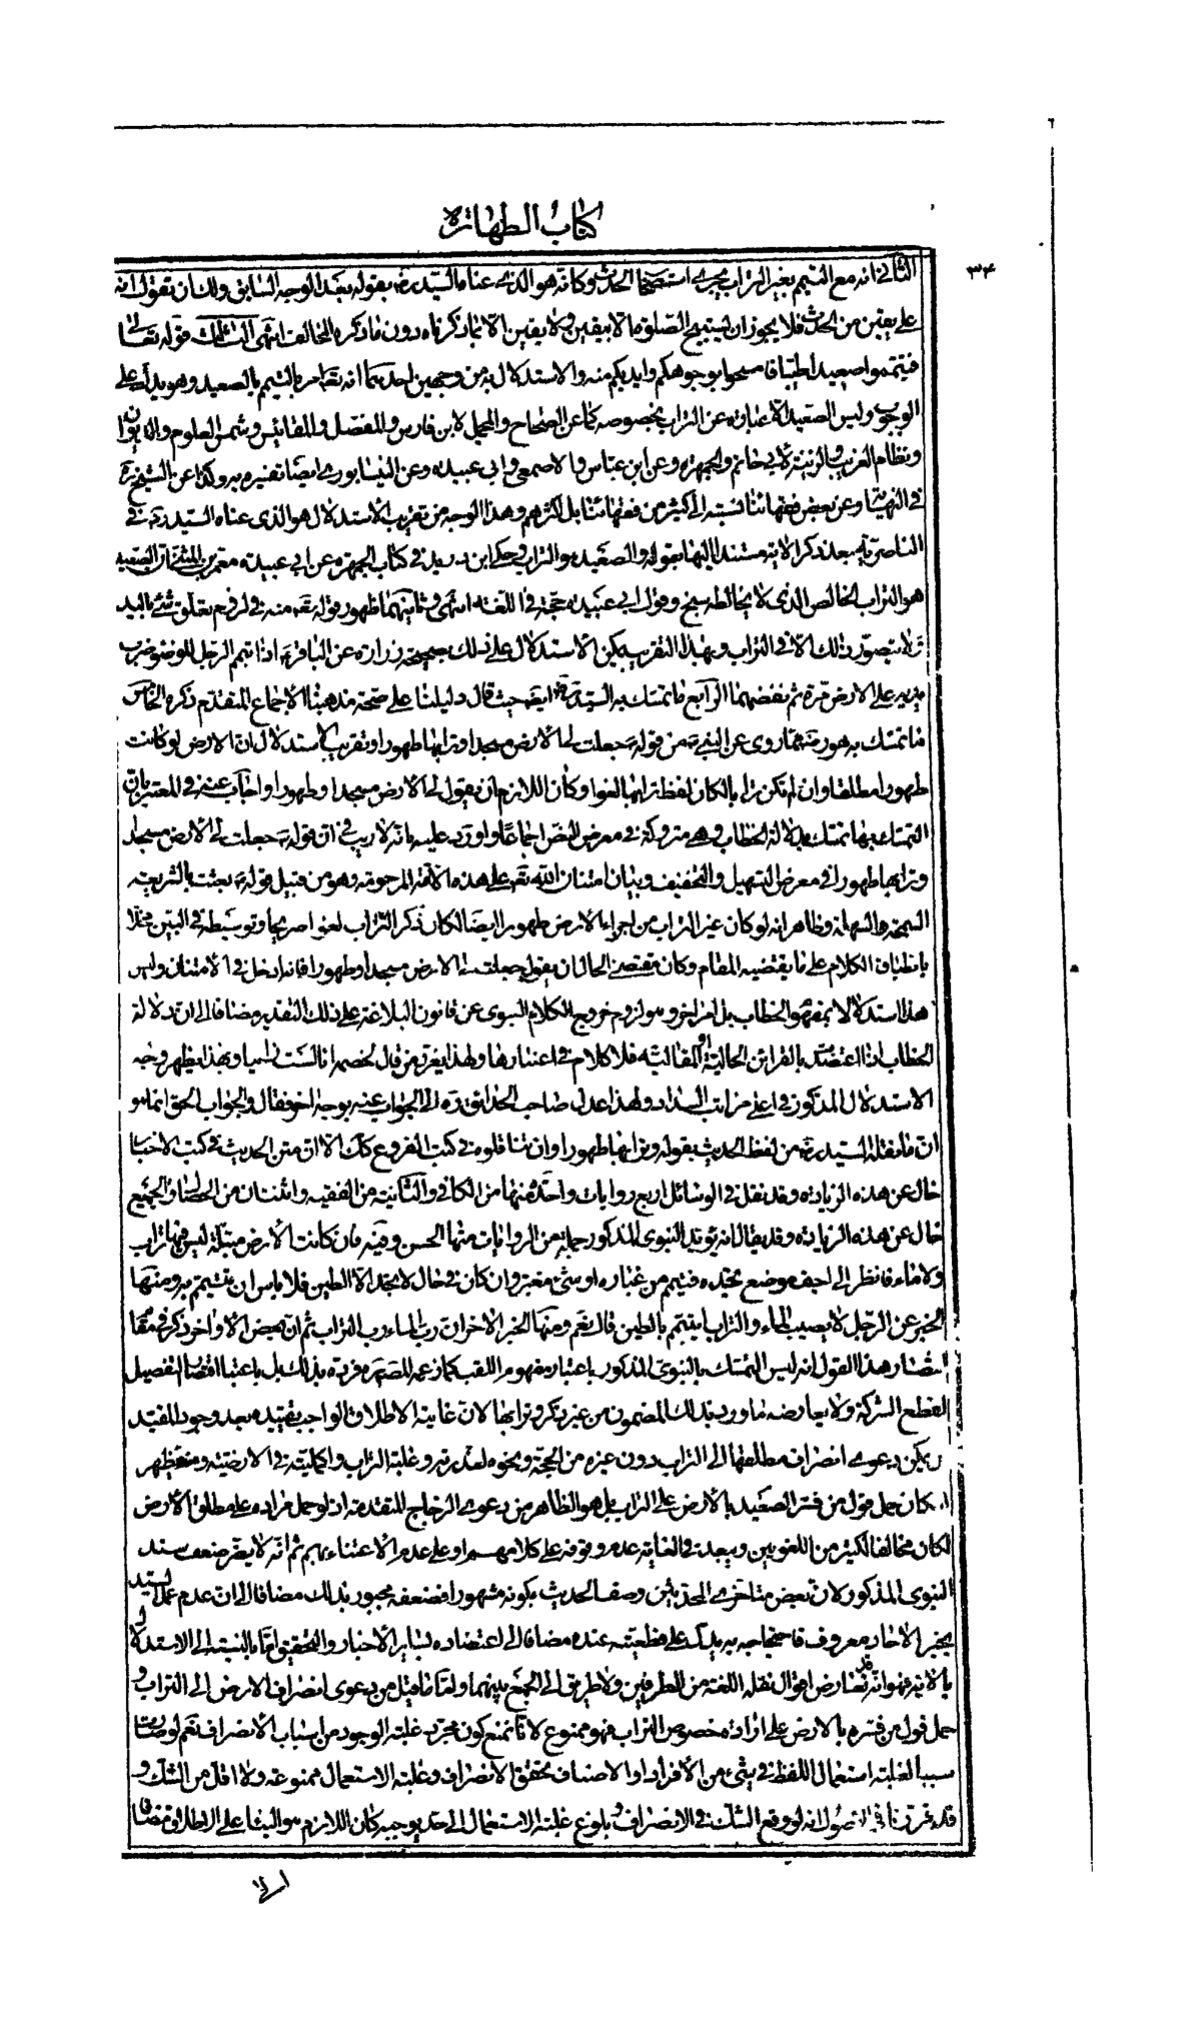 كتاب الطهارة
٣۴
الثاني انه مع التيمم بغير التراب يجرى استصحاب الحدث وكانه هو الذى عناه السيد ره بقوله بعد الوجه السابق ولك ان تقول انه
على يقين من الحدث فلا يجوز ان يستبيح الصلوة الا بيقين ولا يقين الا بما ذكرناه دون ما ذكره المخالف انتهى الثالث قوله تعالى
فتيمموا صعيدا طيبا فامسحوا بوجوهكم وايديكم منه والاستدلال به من وجهين احدهما انه تعم امر بالتيمم بالصعيد وهو يدل على
الوجوب وليس الصعيد الا عبارة عن التراب بخصوصه كما عن الصحاح والمجمل لابن فارس والمفصل والمقائيس وشمس العلوم والديوان
ونظام الغريب والزينة لابى حاتم والجمهرة وعن ابن عباس والاصمعى وابى عبيدة وعن النيسابورى ايضا تفسيره به وكذا عن الشيخ ره
في النهاية وعن بعض فقهائنا نسبته الى كثير من فقهائنا بل اكثرهم وهذا الوجه من تقريب الاستدلال هو الذى عناه السيد ره في
الناصرية بعد ذكر الاية مستندا اليها بقوله والصعيد هو التراب حكى ابن دريد في كتاب الجمهرة عن ابى عبيدة معمر بن المثنى ان الصعيد
هو التراب الخالص الذى لا يخالطه سبخ وقول ابى عبيدة حجة في اللغة انتهى وثانيهما ظهور قوله تعم منه في لزوم تعلق شئ باليد
ولا يتصور ذلك الا في التراب وبهذا التقريب يمكن الاستدلال على ذلك بصحيحة زرارة عن الباقر ع اذا تيمم الرجل للوضوء ضرب
بيديه على الارض مرة ثم نفضهما الرابع ما تمسك به السيد ره ايضا حيث قال دليلنا على صحة مذهبنا الاجماع المتقدم ذكره الخامس
ما تمسك به هو ره مما روى عن النبى ص من قوله ص جعلت لى الارض مسجدا وترابها طهورا وتقريب الاستدلال ان الارض لو كانت
طهورا مطلقا وان لم تكن ترابا لكان لفظ ترابها لغوا وكان اللازم ان يقول لى الارض مسجدا وطهورا واجاب عنه في المعتبر بان
التمسك بها تمسك بدلالة الخطاب وهى متروكة في معرض النص اجماعا واورد عليه بانه لا ريب في ان قوله ص جعلت لى الارض مسجدا
وترابها طهورا في معرض التسهيل والتخفيف وبيان امتنان الله تعم على هذه الامة المرحومة وهو من قبيل قوله ص بعثت بالشريعة
السمحة السهلة وظاهر انه لو كان غير التراب من اجزاء الارض طهورا ايضا لكان ذكر التراب لغوا صريحا وتوسيطه في البين مخلا
بانطباق الكلام على ما يقتضيه المقام وكان مقتضى الحال ان يقول جعلت لى الارض مسجدا وطهورا فانه ادخل في الامتنان وليس
هذا استدلالا بمفهوم الخطاب بل امر اخر وهو لزوم خروج الكلام النبوى عن قانون البلاغة على ذلك التقدير مضافا الى ان دلالة
الخطاب اذا اعتضدت بالقرائن الحالية او المقالية فلا كلام في اعتبارها ولهذا يعزر من قال لخصمه انا لست زانيا وبهذا يظهر وجه
الاستدلال المذكور في اعلى مراتب السداد ولهذا عدل صاحب الحدائق ره الى الجواب عنه بوجه اخر فقال والجواب الحق انما هو
ان ما نقله السيد ره من لفظ الحديث بقوله وترابها طهورا وان تناقلوه في كتب الفروع كك الا ان متن الحديث في كتب الاخبار
خال عن هذه الزيادة وقد نقل في الوسائل اربع روايات واحدة منها من الكافي والثانية من الفقيه واثنتان من الخصال والجميع
خال عن هذه الزيادة وقد يقال انه يؤيد النبوى المذكور جملة من الروايات منها الحسن وفيه فان كانت الارض مبتلة ليس فيها تراب
ولا ماء فانظر الى اجف موضع تجده فتيمم من غباره او شئ مغبر وان كان في حال لا يجد الا الطين فلا باس ان يتيمم به ومنها
الخبر عن الرجل لا يصيب الماء والتراب ايتيمم بالطين قال نعم ومنها الخبر الاخر ان رب الماء رب التراب ثم ان بعض الاواخر ذكر في مقام
انتصار هذا القول انه ليس التمسك بالنبوى المذكور باعتبار مفهوم اللقب كما زعمه المص ره فرده بذلك بل باعتبار اقتضاء التفصيل
القطع الشركة ولا يعارضه ما ورد بذلك المضمون من غير ذكر وترابها لان غاية الاطلاق الواجب تقييده بعد وجود المقيد
يمكن دعوى انصراف مطلقها الى التراب دون غيره من الحجر ونحوه لندرته وغلبة التراب واكمليته في الارضية ومنه يظهر
امكان حمل قول من فسر الصعيد بالارض على التراب بل هو الظاهر من دعوى الزجاج المتقدمة اذ لو حمل مراده على مطلق الارض
لكان مخالفا لكثير من اللغويين ويبعد في الغاية عدم وقوفه على كلامهم او على عدم الاعتناء بهم ثم انه لا يضر ضعف سند
النبوى المذكور لان بعض متاخرى المحدثين وصف الحديث بكونه مشهورا فضعفه مجبور بذلك مضافا الى ان عدم عمل السيد
بخبر الاحاد معروف فاحتجاجه به يدل على قطعيته عنده مضافا الى اعتضاده بساير الاخبار والتحقيق اما بالنسبة الى الاستدلال
بالاية فهو انه قد تعارض اقوال نقلة اللغة من الطرفين ولا طريق الى الجمع بينهما واما ما قيل من دعوى انصراف الارض الى التراب و
حمل قول من فسره بالارض على ارادة خصوص التراب فهو ممنوع لانا نمنع كون مجرد غلبة الوجود من اسباب الانصراف نعم لو صارت
سببا لغلبة استعمال اللفظ في شئ من الافراد او الاصناف تحقق الانصراف وغلبة الاستعمال ممنوعة ولا اقل من الشك و
قد قررنا في الاصول انه لو وقع الشك في الانصراف وبلوغ غلبة الاستعمال الى حد يوجبه كان اللازم هو البناء على الاطلاق مضافا
الى